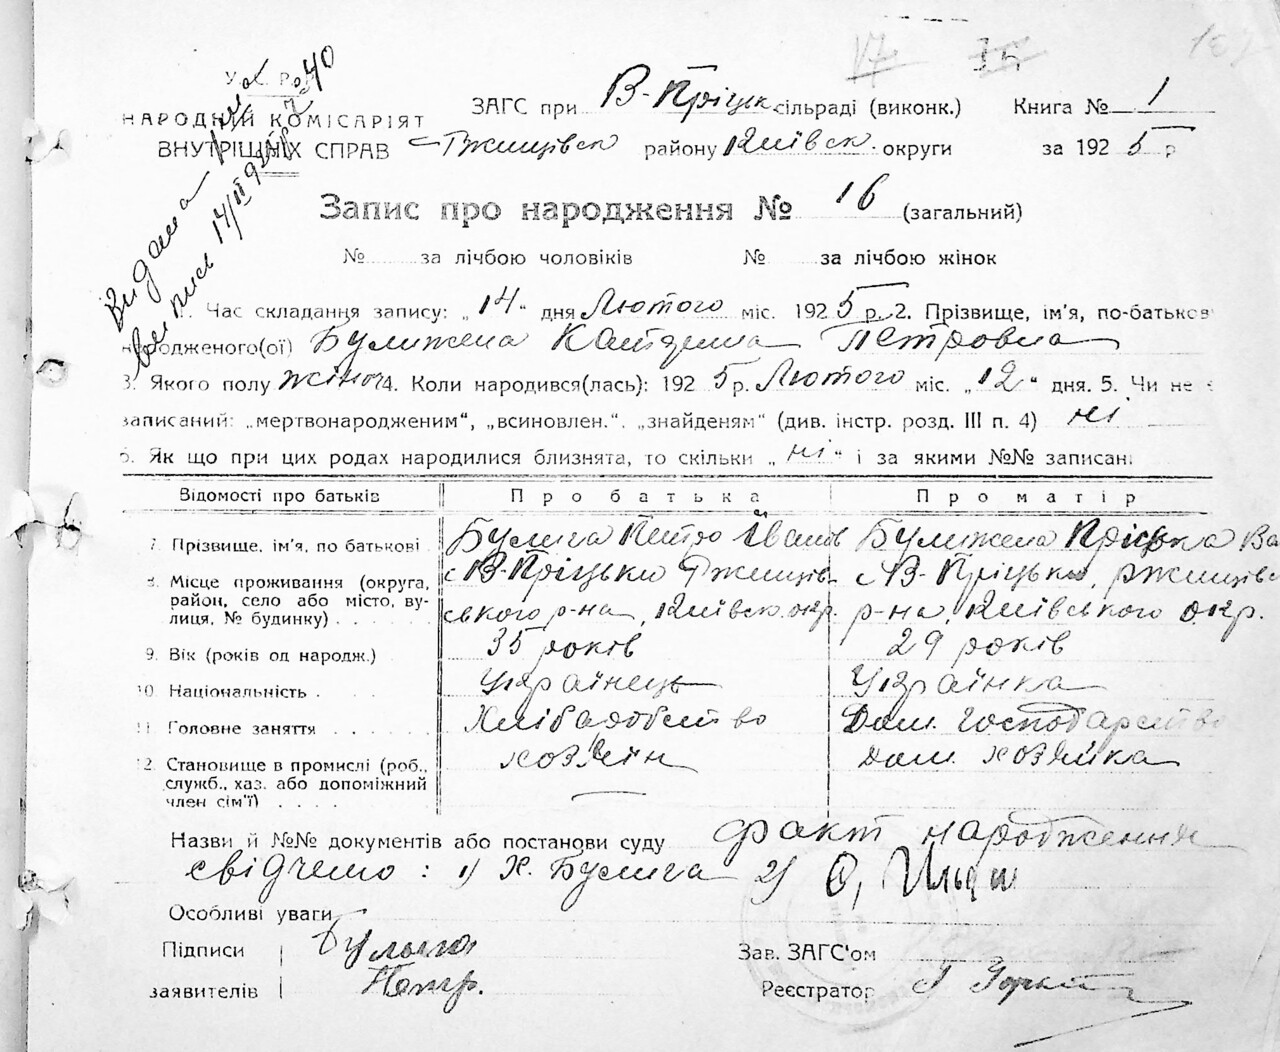 17
У. Р.
НАРОДНІЙ КОМІСАРІЯТ
ВНУТРІШНІХ СПРАВ
Видана
ви пись 14/II 40
ЗАГС при В-Пріцьк сільраді (виконк.) Книга № 1
Ржищівськ району Київськ. округи за 1925 р
Запис про народження № 16 (загальний)
№ за лічбою чоловіків № за лічбою жінок
1. Час складання запису: „14“ дня Лютого міс. 1925 р. 2. Прізвище, ім'я, по-батьков
народженого(ої) Булижена Катерина Петровна
3. Якого полу жіноч 4. Коли народився(лась): 1925 р. Лютого міс. „12“ дня. 5. Чи не є
записаний: „мертвонародженим“, „всиновлен.“, „знайденям“ (див. інстр. розд. III п. 4) ні
6. Як що при цих родах народилися близнята, то скільки „ні“ і за якими №№ записані
Відомості про батьків Про батька Про матір
7. Прізвище, ім'я, по батькові Булига Петро Іванов Булижена Пріська Ва
8. Місце проживання (округа, район, село або місто, вулиця, № будинку) с В-Пріцьки Ржищів- с В-Пріцьки, ржищівс
ського р-на, Київськ. окр. р-на, Київського окр.
9. Вік (років од народж.) 35 років 29 років
10. Національність Українець Українка
11. Головне заняття Хлібадобство Дом. Господарство
12. Становище в промислі (роб., хозяін Дом. хозяйка
служб., хаз. або допоміжний
член сім'ї)
Назви й №№ документів або постанови суду факт народження
свідчемо: 1) Х. Булига 2) О,
Особливі уваги
Підписи Булыга Зав. ЗАГС'ом
заявителів Петр. Реєстратор